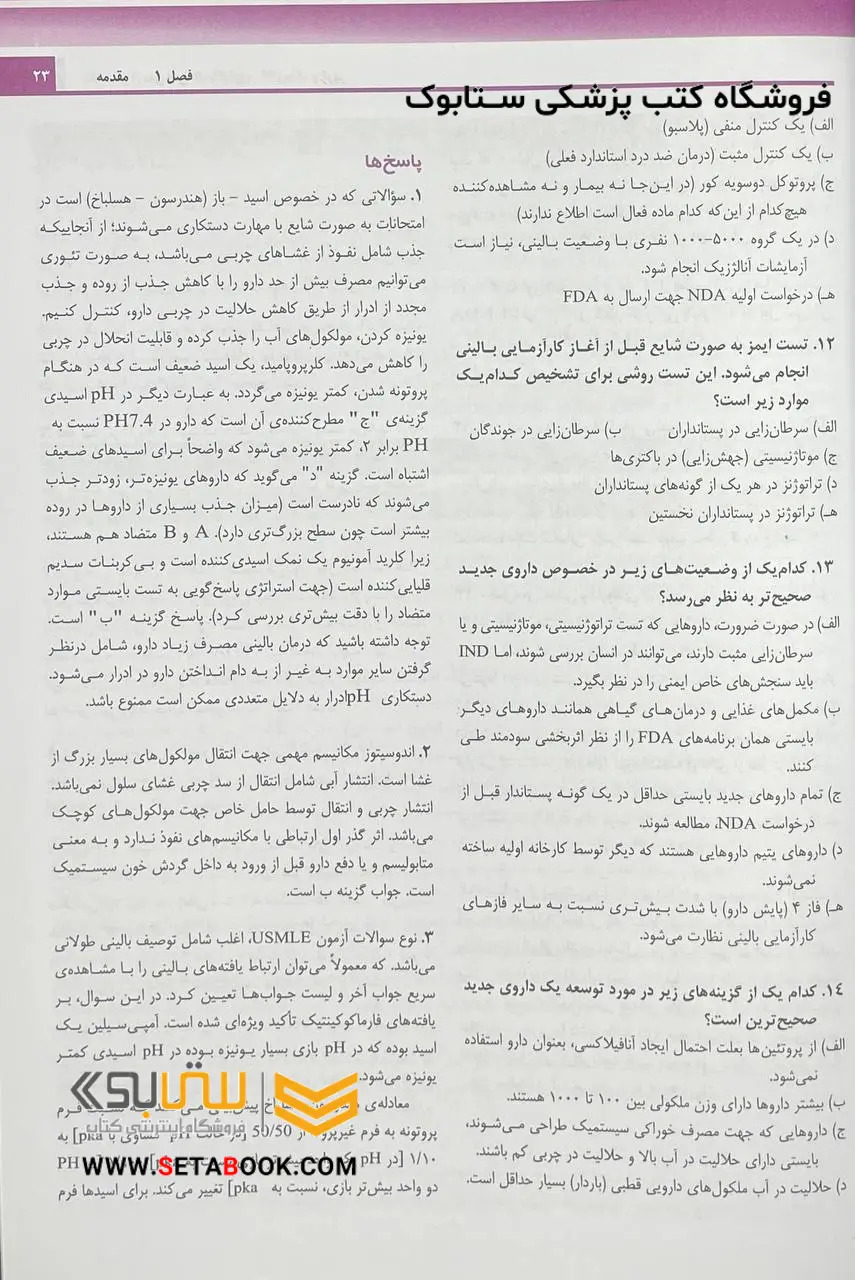 فصل ۱ مقدمه ۲۳
فروشگاه کتب پزشکی ستابوک
الف) یک کنترل منفی (پلاسبو)
ب) یک کنترل مثبت (درمان ضد درد استاندارد فعلی)
ج) پروتوکل دوسویه کور (در این‌جا نه بیمار و نه مشاهده‌کننده
هیچ‌کدام از این‌که کدام ماده فعال است اطلاع ندارند)
د) در یک گروه ۵۰۰۰–۱۰۰۰ نفری با وضعیت بالینی، نیاز است
آزمایشات آنالژزیک انجام شود.
هـ) درخواست اولیه NDA جهت ارسال به FDA
۱۲. تست ایمز به صورت شایع قبل از آغاز کارآزمایی بالینی
انجام می‌شود. این تست روشی برای تشخیص کدام‌یک
موارد زیر است؟
الف) سرطان‌زایی در پستانداران ب) سرطان‌زایی در جوندگان
ج) موتاژنیسیتی (جهش‌زایی) در باکتری‌ها
د) تراتوژنز در هر یک از گونه‌های پستانداران
هـ) تراتوژنز در پستانداران نخستین
۱۳. کدام‌یک از وضعیت‌های زیر در خصوص داروی جدید
صحیح‌تر به نظر می‌رسد؟
الف) در صورت ضرورت، داروهایی که تست تراتوژنیسیتی، موتاژنیسیتی و یا
سرطان‌زایی مثبت دارند، می‌توانند در انسان بررسی شوند، اما IND
باید سنجش‌های خاص ایمنی را در نظر بگیرد.
ب) مکمل‌های غذایی و درمان‌های گیاهی همانند داروهای دیگر
بایستی همان برنامه‌های FDA را از نظر اثربخشی سودمند طی
کنند.
ج) تمام داروهای جدید بایستی حداقل در یک گونه پستاندار قبل از
درخواست NDA، مطالعه شوند.
د) داروهای یتیم داروهایی هستند که دیگر توسط کارخانه اولیه ساخته
نمی‌شوند.
هـ) فاز ۴ (پایش دارو) با شدت بیش‌تری نسبت به سایر فازهای
کارآزمایی بالینی نظارت می‌شود.
۱۴. کدام یک از گزینه‌های زیر در مورد توسعه یک داروی جدید
صحیح‌ترین است؟
الف) از پروتئین‌ها بعلت احتمال ایجاد آنافیلاکسی، بعنوان دارو استفاده
نمی‌شود.
ب) بیشتر داروها دارای وزن ملکولی بین ۱۰۰ تا ۱۰۰۰ هستند.
ج) داروهایی که جهت مصرف خوراکی سیستمیک طراحی می‌شوند،
بایستی دارای حلالیت در آب بالا و حلالیت در چربی کم باشند.
د) حلالیت در آب ملکول‌های دارویی قطبی (باردار) بسیار حداقل است.
پاسخ‌ها
۱. سؤالاتی که در خصوص اسید – باز (هندرسون – هسلباخ) است در
امتحانات به صورت شایع با مهارت دستکاری می‌شوند؛ از آنجاییکه
جذب شامل نفوذ از غشاهای چربی می‌باشد، به صورت تئوری
می‌توانیم مصرف بیش از حد دارو را با کاهش جذب از روده و جذب
مجدد از ادرار از طریق کاهش حلالیت در چربی دارو، کنترل کنیم.
یونیزه کردن، مولکول‌های آب را جذب کرده و قابلیت انحلال در چربی
را کاهش می‌دهد. کلرپروپامید، یک اسید ضعیف است که در هنگام
پروتونه شدن، کمتر یونیزه می‌گردد. به عبارت دیگر در pH اسیدی
گزینه‌ی "ج" مطرح‌کننده‌ی آن است که دارو در PH7.4 نسبت به
PH برابر ۲، کمتر یونیزه می‌شود که واضحاً برای اسیدهای ضعیف
اشتباه است. گزینه "د" می‌گوید که داروهای یونیزه‌تر، زودتر جذب
می‌شوند که نادرست است (میزان جذب بسیاری از داروها در روده
بیشتر است چون سطح بزرگ‌تری دارد). A و B متضاد هم هستند،
زیرا کلرید آمونیوم یک نمک اسیدی‌کننده است و بی‌کربنات سدیم
قلیایی‌کننده است (جهت استراتژی پاسخ‌گویی به تست بایستی موارد
متضاد را با دقت بیش‌تری بررسی کرد). پاسخ گزینه "ب" است.
توجه داشته باشید که درمان بالینی مصرف زیاد دارو، شامل درنظر
گرفتن سایر موارد به غیر از به دام انداختن دارو در ادرار می‌شود.
دستکاری pHادرار به دلایل متعددی ممکن است ممنوع باشد.
۲. اندوسیتوز مکانیسم مهمی جهت انتقال مولکول‌های بسیار بزرگ از
غشا است. انتشار آبی شامل انتقال از سد چربی غشای سلول نمی‌باشد.
انتشار چربی و انتقال توسط حامل خاص جهت مولکول‌های کوچک
می‌باشد. اثر گذر اول ارتباطی با مکانیسم‌های نفوذ ندارد و به معنی
متابولیسم و یا دفع دارو قبل از ورود به داخل گردش خون سیستمیک
است. جواب گزینه ب است.
۳. نوع سوالات آزمون USMLE، اغلب شامل توصیف بالینی طولانی
می‌باشد. که معمولاً می‌توان ارتباط یافته‌های بالینی را با مشاهده‌ی
سریع جواب آخر و لیست جواب‌ها تعیین کرد. در این سوال، بر
یافته‌های فارماکوکینتیک تأکید ویژه‌ای شده است. آمپی‌سیلین یک
اسید بوده که در pH بازی بسیار یونیزه بوده در pH اسیدی کمتر
یونیزه می‌شود.
معادله‌ی
فرم
پروتونه به فرم غیرپروتونه از 50/50 pH مساوی با pka] به
۱/۱۰ [در pH PH
دو واحد بیش‌تر بازی، نسبت به pka] تغییر می‌کند. برای اسیدها فرم
ستابوک
فروشگاه اینترنتی کتاب
WWW.SETABOOK.COM